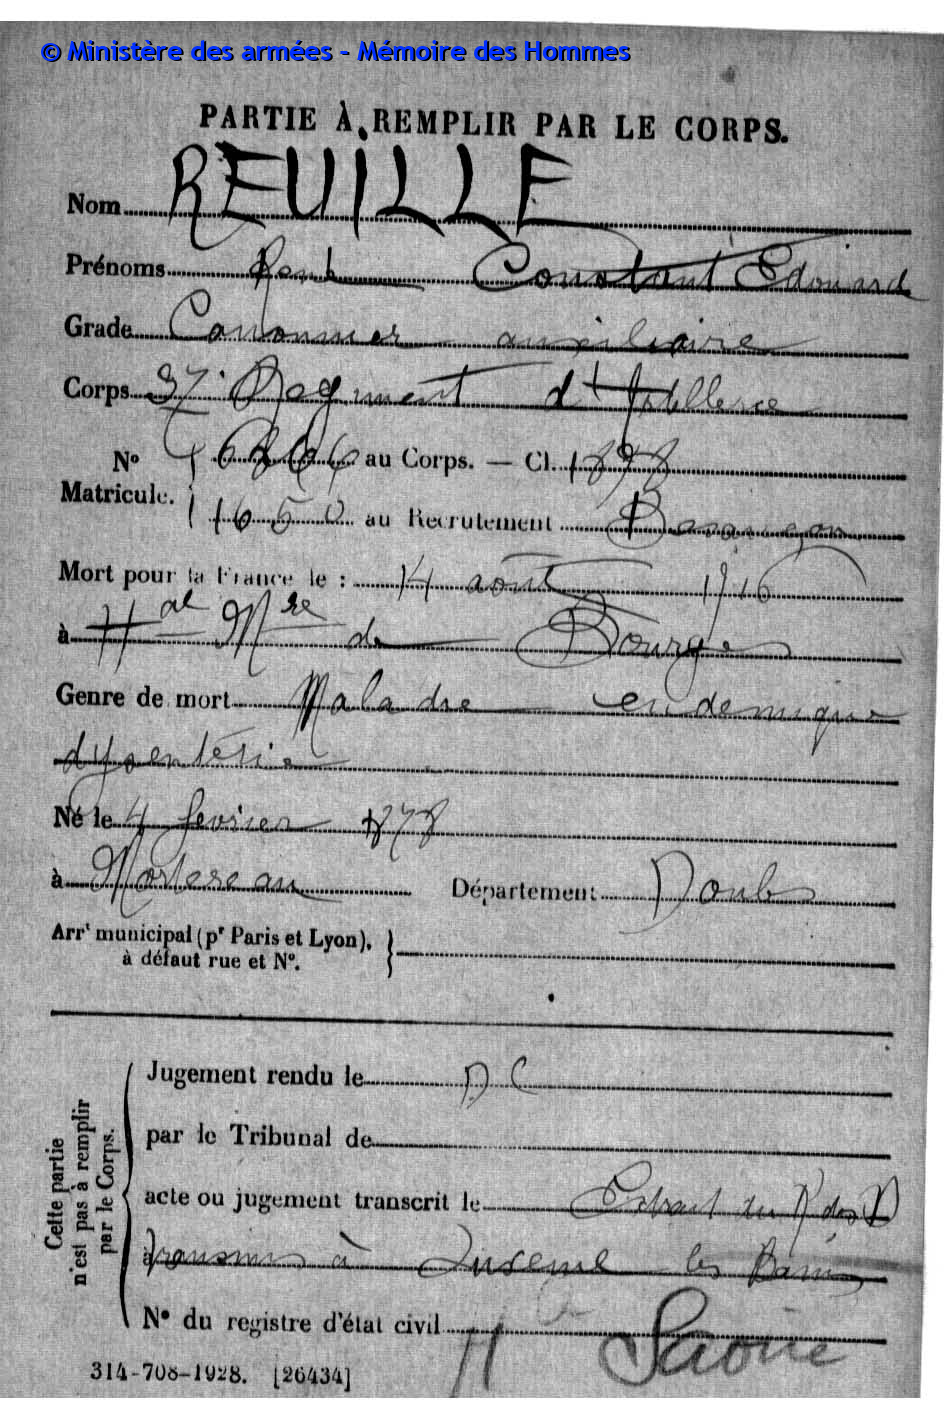 © Ministère des armées - Mémoire des Hommes
PARTIE À REMPLIR PAR LE CORPS.
Nom REUILLE
Prénoms Constant Edouard
Grade Canonnier auxiliaire
Corps 37e Régiment d'Artillerie
No au Corps. — Cl. 1898
Matricule. 1650 au Recrutement Besançon
Mort pour la France le : 14 août 1916
à Hal Mre de Bourges
Genre de mort Maladie endémique
dysentérie
Né le 4 février 1878
à Mortereau Département Doubs
Arrt municipal (pr Paris et Lyon),
à défaut rue et No.
Cette partie
n'est pas à remplir
par le Corps.
Jugement rendu le D C
par le Tribunal de
acte ou jugement transcrit le Extrait du R des D
à transmis à Luxeuil les Bains
No du registre d'état civil
Hte Saône
314-708-1928. [26434]